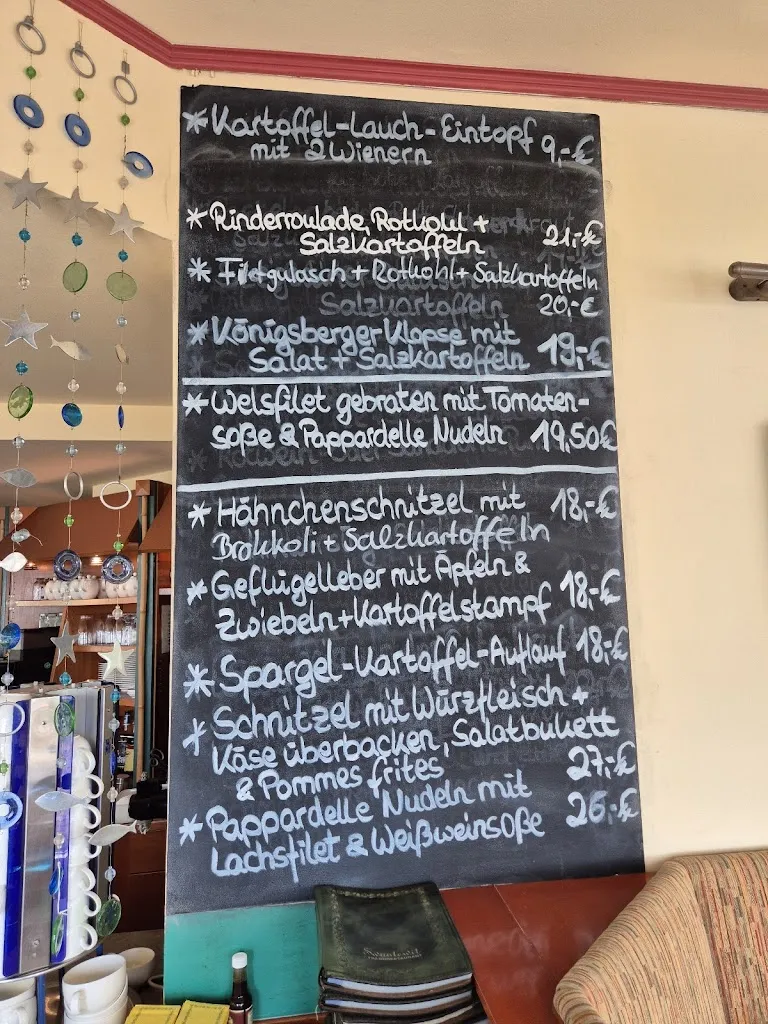 * Kartoffel-Lauch-Eintopf
mit 2 Wienern 9,-€
* Rinderroulade, Rotkohl +
Salzkartoffeln 21,-€
* Filetgulasch + Rotkohl + Salzkartoffeln
Salzkartoffeln 20,-€
* Königsberger Klopse mit
Salat + Salzkartoffeln 19,-€
* Welsfilet gebraten mit Tomaten-
soße & Pappardelle Nudeln 19,50€
* Hähnchenschnitzel mit 18,-€
Brokkoli + Salzkartoffeln
* Geflügelleber mit Äpfeln &
Zwiebeln + Kartoffelstampf 18,-€
* Spargel-Kartoffel-Auflauf 18,-€
* Schnitzel mit Würzfleisch +
Käse überbacken, Salatbukett
& Pommes frites 27,-€
* Pappardelle Nudeln mit 26,-€
Lachsfilet & Weißweinsoße